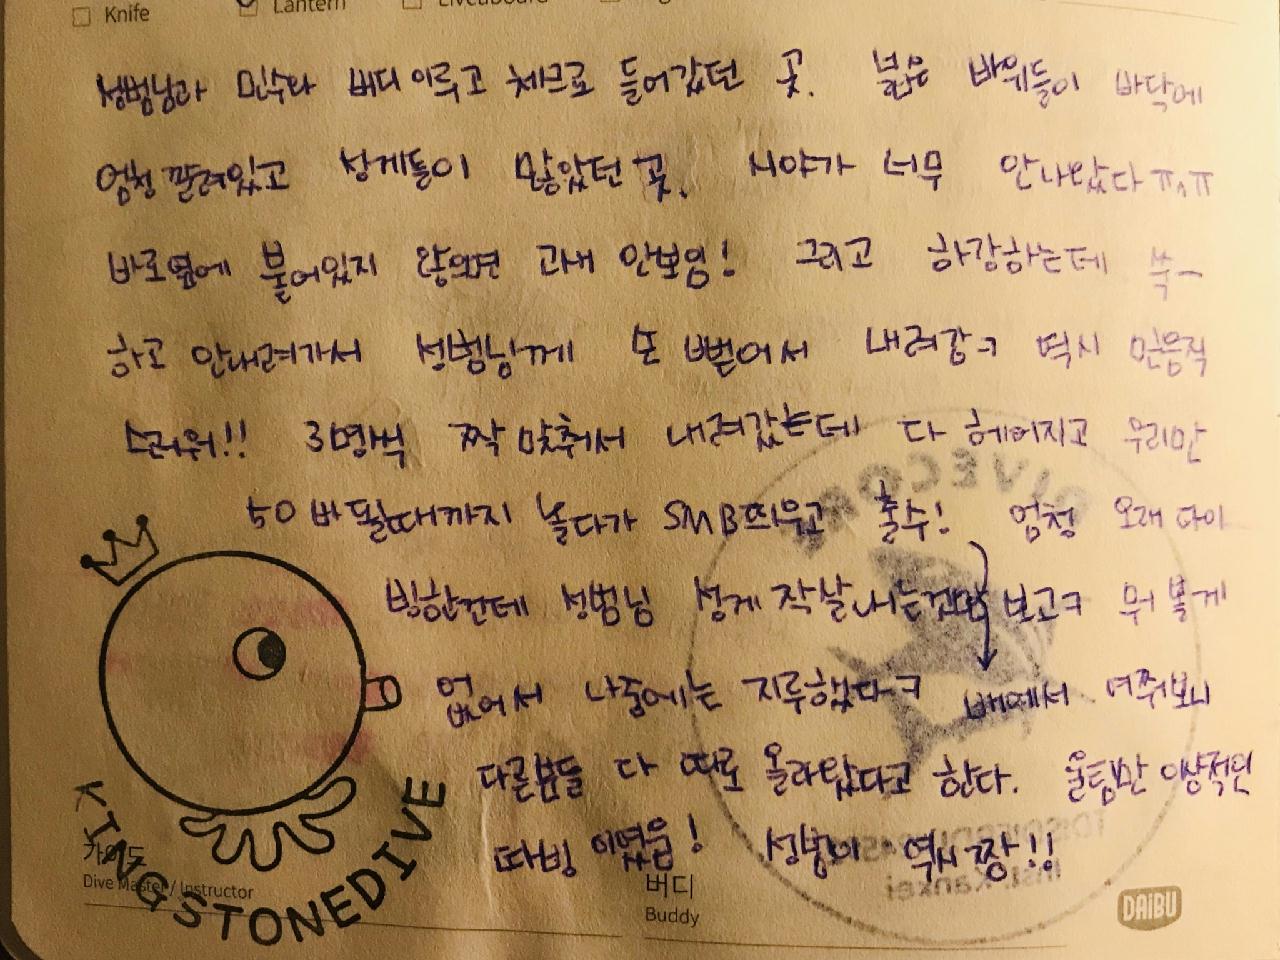 Knife Lantern Liveaboard
성범님과 민수와 버디 이루고 체크로 들어갔던 곳. 넓은 바위들이 바닥에
엄청 깔려있고 성게들이 많았던 곳. 시야가 너무 안나왔다 ㅠㅅㅠ
바로옆에 붙어있지 않으면 고새 안보임! 그리고 하강하는데 쑥ㅡ
하고 안내려가서 성범님께 손 뻗어서 내려감ㅋ 역시 믿음직
스러워!! 3명씩 짝 맞춰서 내려갔는데 다 헤어지고 우리만
50바 될때까지 놀다가 SMB띄우고 출수! 엄청 오래 다이
빙한건데 성범님 성게 작살내는것만 보고ㅋ 뭐 볼게
없어서 나중에는 지루했다ㅋ 배에서 여쭤보니
다른분들 다 따로 올라왔다고 한다. 울팀만 이상적인
다빙이였음! 성범이 역시 짱!!
KINGSTONEDIVE
가이드
Dive Master / Instructor
버디
Buddy
DAIBU
DIVECOR
Kankei